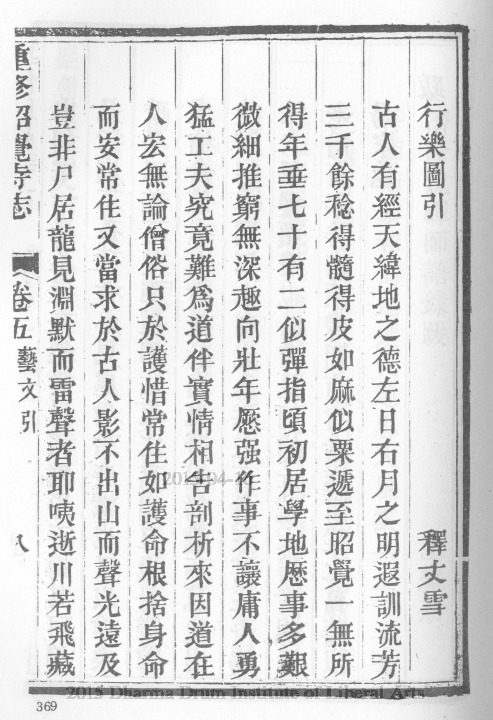 行樂圖引　釋丈雪
古人有經天緯地之德左日右月之明遐訓流芳
三千餘稔得髓得皮如麻似粟遞至昭覺一無所
得年垂七十有二似彈指頃初居學地歷事多艱
微細推窮無深趣向壯年愿强作事不讓庸人勇
猛工夫究竟難爲道伴實情相告剖析來因道在
人宏無論僧俗只於護惜常住如護命根捨身命
而安常住又當求於古人影不出山而聲光遠及
豈非尸居龍見淵默而雷聲者耶咦逝川若飛藏
重修昭覺寺志　卷五藝文引　八
2015-04-
369
2015 Dharma Drum Institute of Liberal Arts